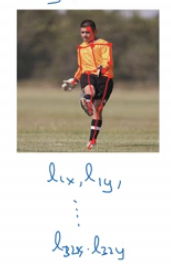 l1x, l1y,
⋮
l32x, l32y